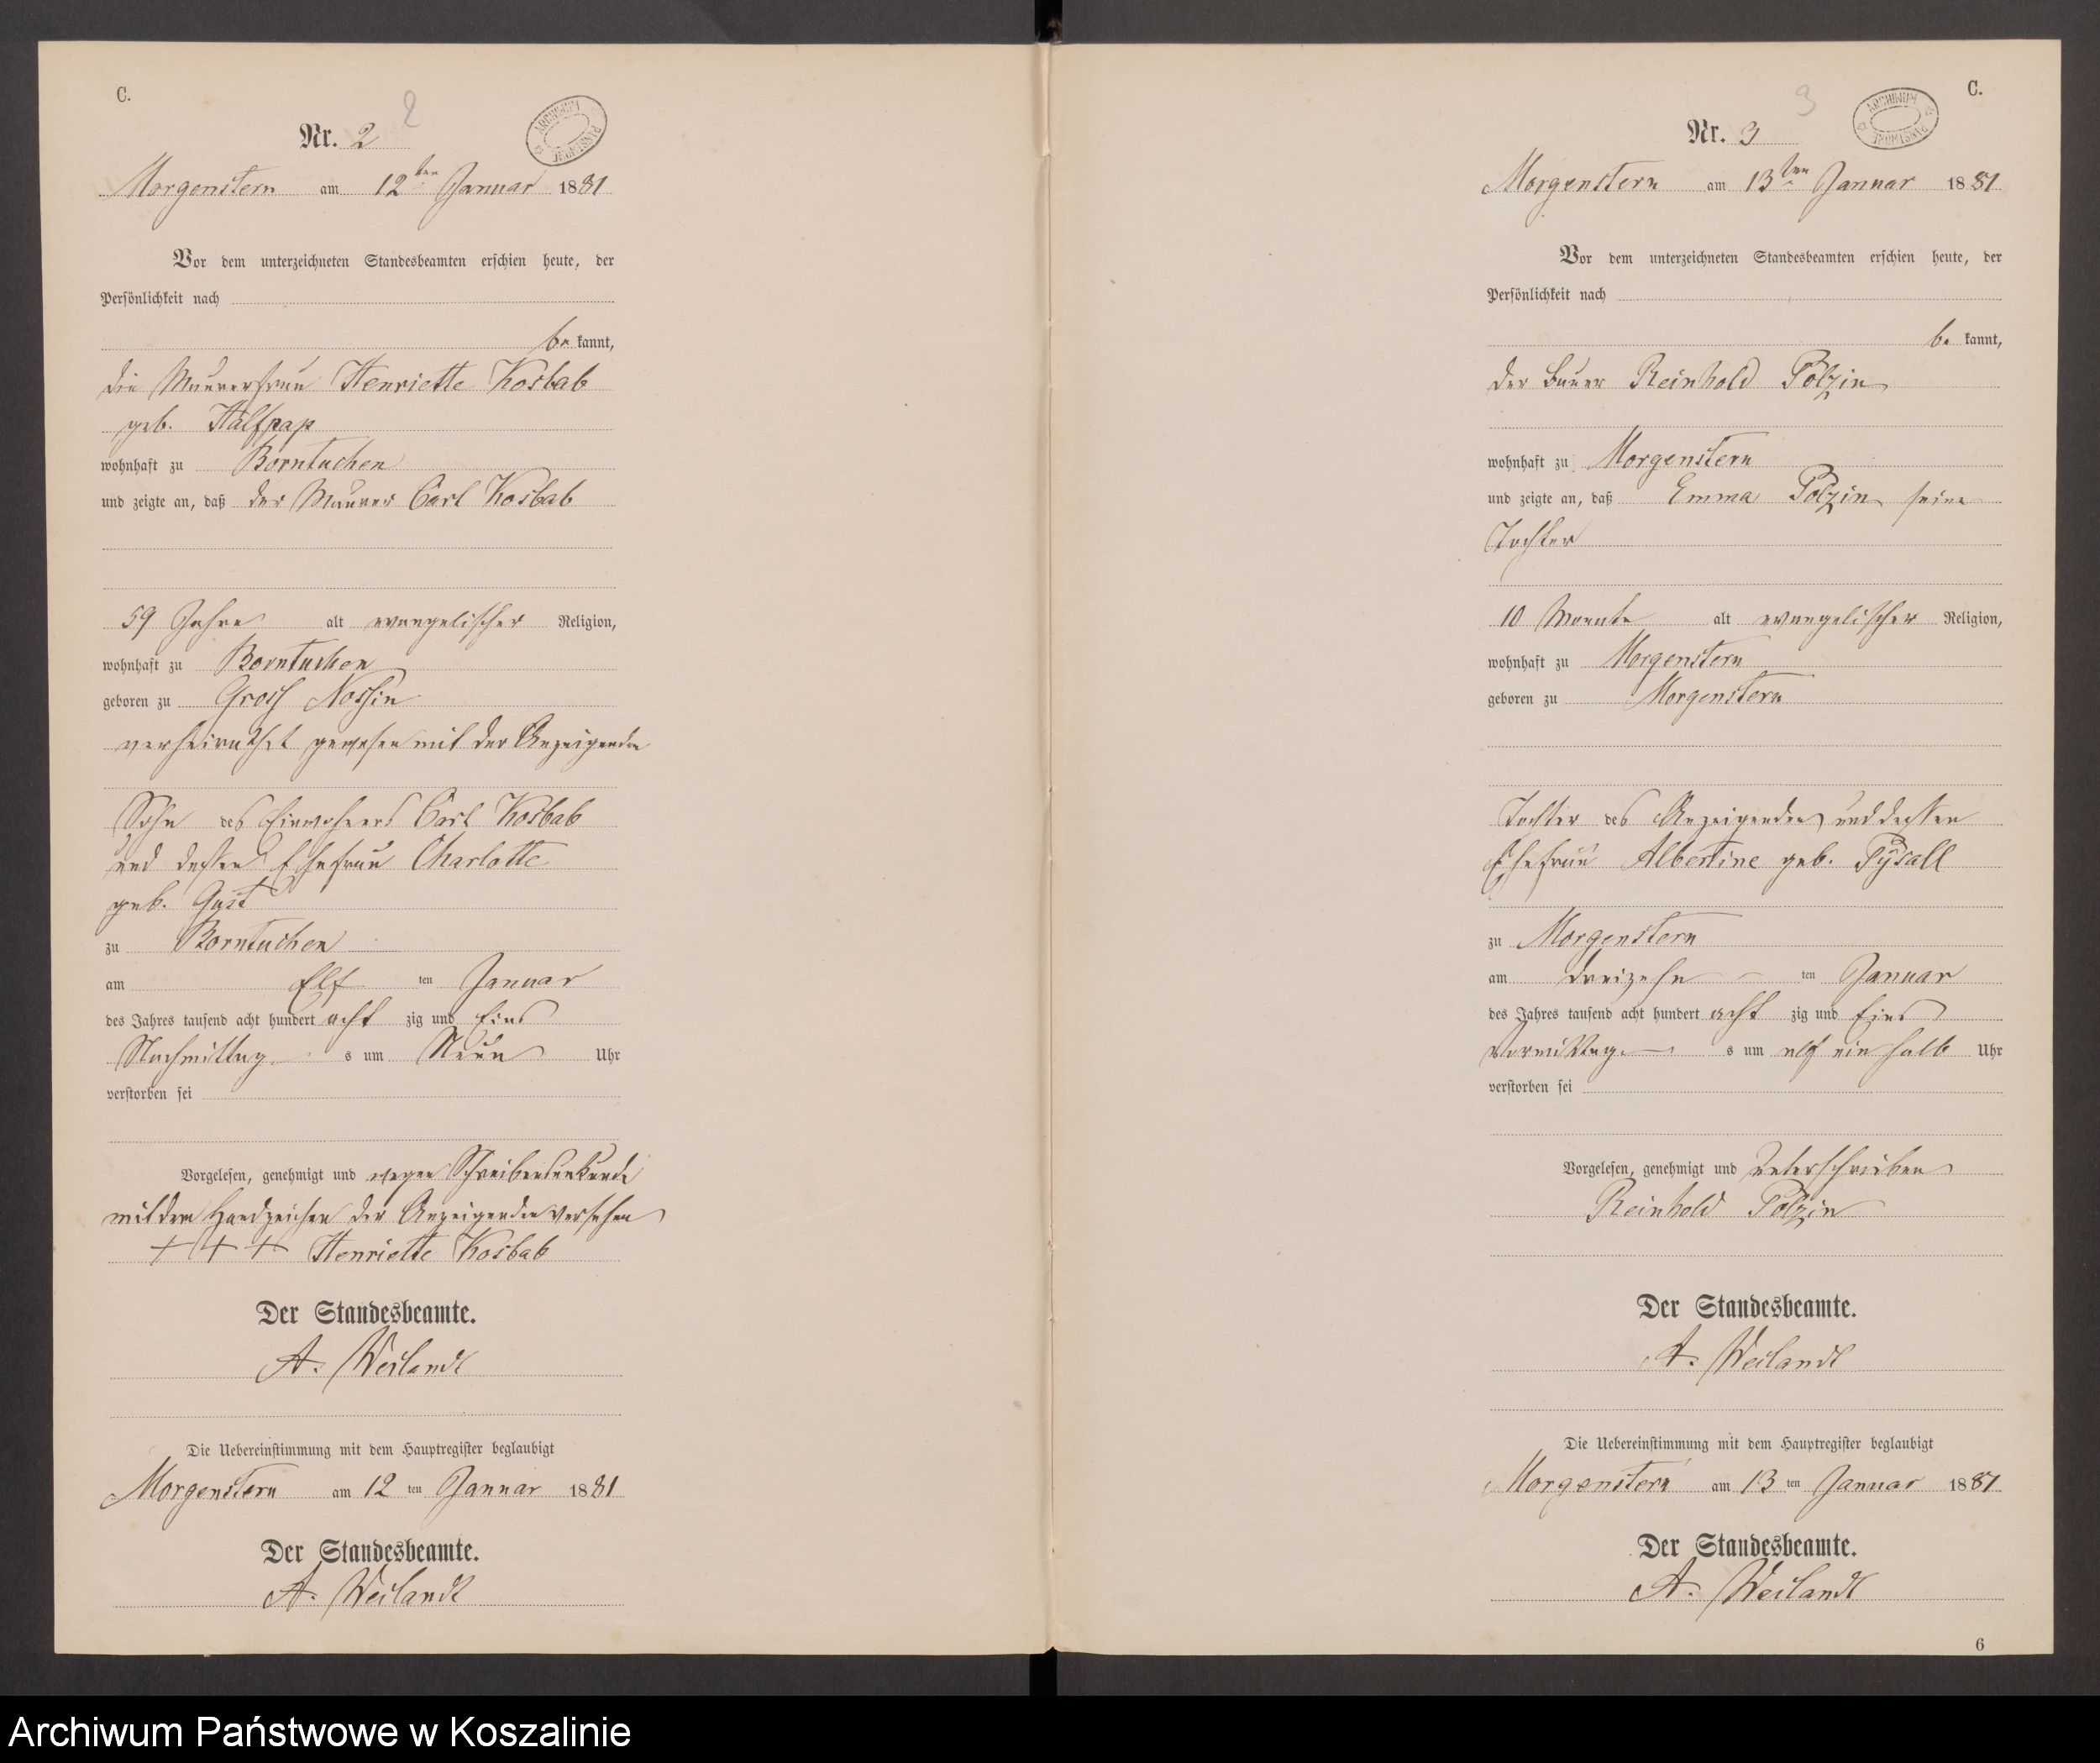 C.
2
Nr. 2
ARCHIWUM PAŃSTWOWE
Morgenstern am 12ten Januar 1881
Vor dem unterzeichneten Standesbeamten erschien heute, der
Persönlichkeit nach
be kannt,
die Maurerfrau Henriette Kosbab
geb. Halfpap
wohnhaft zu Borntuchen
und zeigte an, daß der Maurer Carl Kosbab
59 Jahre alt evangelischer Religion,
wohnhaft zu Borntuchen
geboren zu Gross Nossin
verheirathet gewesen mit der Anzeigenden
Sohn des Einwohners Carl Kosbab
und dessen Ehefrau Charlotte
geb. Gust
zu Borntuchen
am Elf ten Januar
des Jahres tausend acht hundert acht zig und Eins
Nachmittag s um Neun Uhr
verstorben sei
Vorgelesen, genehmigt und wegen Schreibensunkunde
mit dem Handzeichen der Anzeigenden versehen
+ + + Henriette Kosbab
Der Standesbeamte.
A. Weilandt
Die Uebereinstimmung mit dem Hauptregister beglaubigt
Morgenstern am 12 ten Januar 1881
Der Standesbeamte.
A. Weilandt
C.
3
Nr. 3
ARCHIWUM PAŃSTWOWE
Morgenstern am 13ten Januar 1881
Vor dem unterzeichneten Standesbeamten erschien heute, der
Persönlichkeit nach
be kannt,
der Bauer Reinhold Polzin
wohnhaft zu Morgenstern
und zeigte an, daß Emma Polzin seine
Tochter
10 Monate alt evangelischer Religion,
wohnhaft zu Morgenstern
geboren zu Morgenstern
Tochter des Anzeigenden und dessen
Ehefrau Albertine geb. Pysall
zu Morgenstern
am dreizehn ten Januar
des Jahres tausend acht hundert acht zig und Eins
Vormittag s um elf ein halb Uhr
verstorben sei
Vorgelesen, genehmigt und unterschrieben
Reinhold Polzin
Der Standesbeamte.
A. Weilandt
Die Uebereinstimmung mit dem Hauptregister beglaubigt
Morgenstern am 13 ten Januar 1881
Der Standesbeamte.
A. Weilandt
6
Archiwum Państwowe w Koszalinie